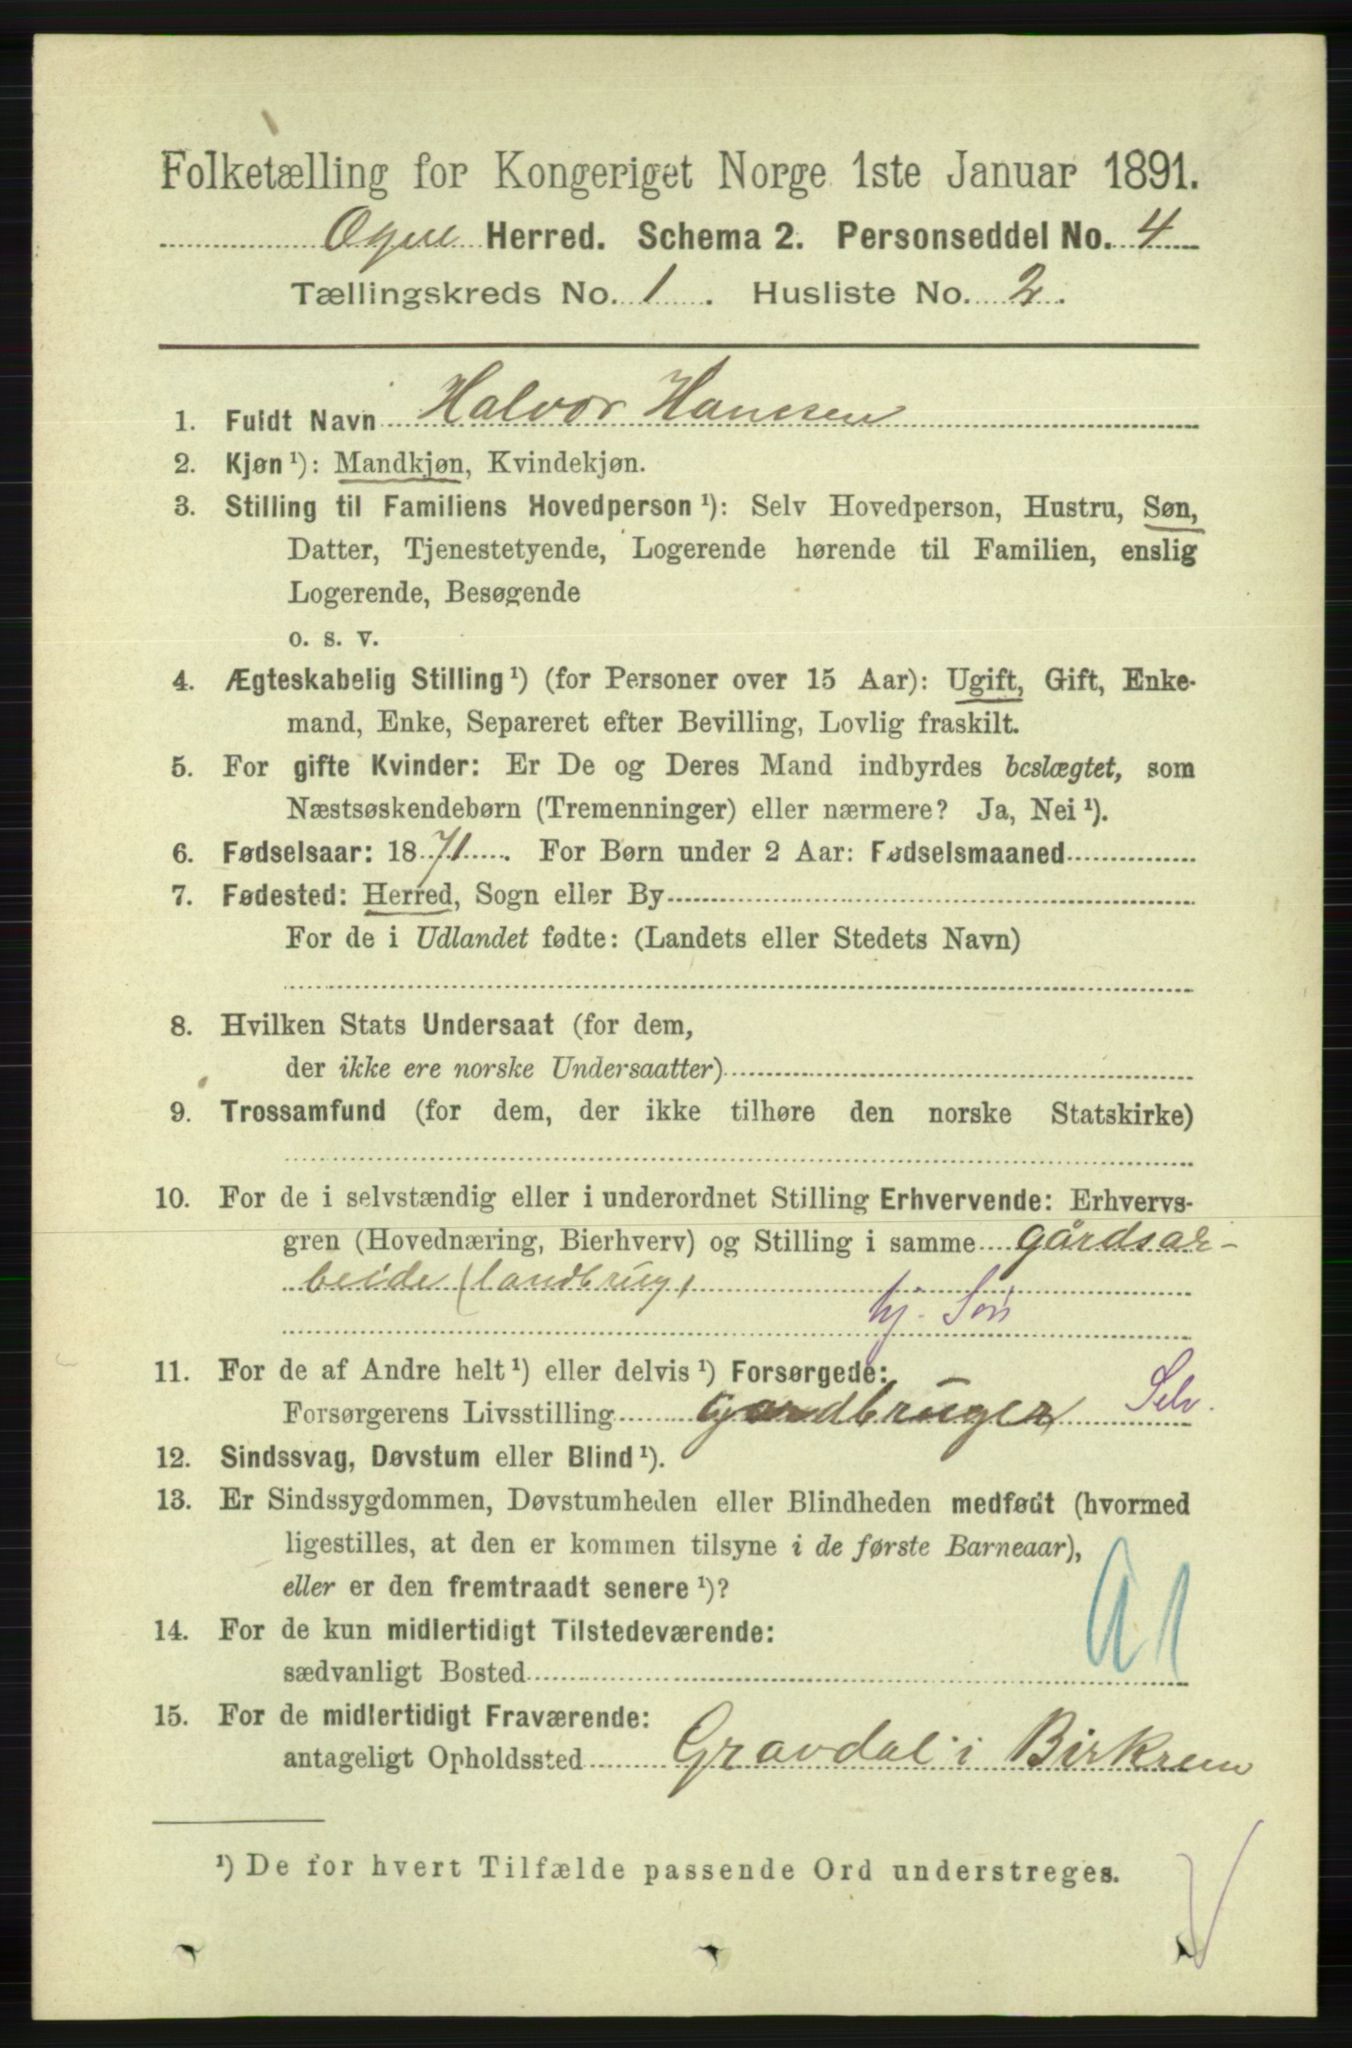 Folketælling for Kongeriget Norge 1ste Januar 1891.
Ogne Herred. Schema 2. Personseddel No. 4
Tællingskreds No. 1. Husliste No. 2.
1. Fuldt Navn Halvor Hanssen
2. Kjøn ¹): Mandkjøn, Kvindekjøn.
3. Stilling til Familiens Hovedperson ¹): Selv Hovedperson, Hustru, Søn,
Datter, Tjenestetyende, Logerende hørende til Familien, enslig
Logerende, Besøgende
o. s. v.
4. Ægteskabelig Stilling ¹) (for Personer over 15 Aar): Ugift, Gift, Enke-
mand, Enke, Separeret efter Bevilling, Lovlig fraskilt.
5. For gifte Kvinder: Er De og Deres Mand indbyrdes beslægtet, som
Næstsøskendebørn (Tremenninger) eller nærmere? Ja, Nei ¹).
6. Fødselsaar: 1871. For Børn under 2 Aar: Fødselsmaaned
7. Fødested: Herred, Sogn eller By
For de i Udlandet fødte: (Landets eller Stedets Navn)
8. Hvilken Stats Undersaat (for dem,
der ikke ere norske Undersaatter)
9. Trossamfund (for dem, der ikke tilhøre den norske Statskirke)
10. For de i selvstændig eller i underordnet Stilling Erhvervende: Erhvervs-
gren (Hovednæring, Bierhverv) og Stilling i samme gårdsar-
beide (landbrug)
hj. Søn
11. For de af Andre helt ¹) eller delvis ¹) Forsørgede:
Forsørgerens Livsstilling Gardbruger Selv.
12. Sindssvag, Døvstum eller Blind ¹).
13. Er Sindssygdommen, Døvstumheden eller Blindheden medfødt (hvormed
ligestilles, at den er kommen tilsyne i de første Barneaar),
eller er den fremtraadt senere ¹)?
14. For de kun midlertidigt Tilstedeværende:
sædvanligt Bosted
15. For de midlertidigt Fraværende:
antageligt Opholdssted Gravdal i Birkrem
¹) De for hvert Tilfælde passende Ord understreges.